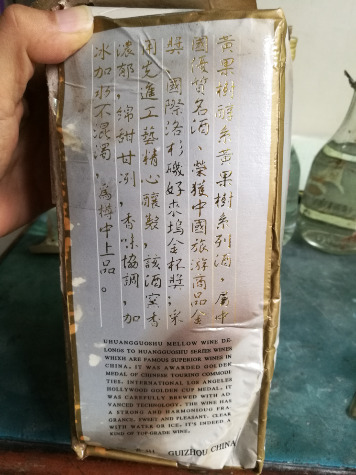 黃果樹醇系黃果樹系列酒，屬中
國優質名酒、榮獲中國旅游商品金
獎 國際洛杉磯好來塢金杯獎；采
用先進工藝精心釀製，該酒窖香
濃郁，綿甜甘冽，香味協調，加
冰加水不混濁，為樽中上品。
UHUANGGUOSHU MELLOW WINE BE-
LONGS TO HUANGGUOSHU SERIES WINES
WHICH ARE FAMOUS SUPERIOR WINES IN
CHINA. IT WAS AWARDED GOLDEN
MEDAL OF CHINESE TOURING COMMODI-
TIES. INTERNATIONAL LOS ANGELES
HOLLYWOOD GOLDEN CUP MEDAL. IT
WAS CAREFULLY BREWED WITH AD-
VANCED TECHNOLOGY. THE WINE HAS
A STRONG AND HARMONIOUG FRA-
GRANCE. SWEET AND PLEASANT. CLEAR
WITH WATER OR ICE. IT'S INDEED A
KIND OF TOP-GRADE WINE.
GUIZHOU CHINA